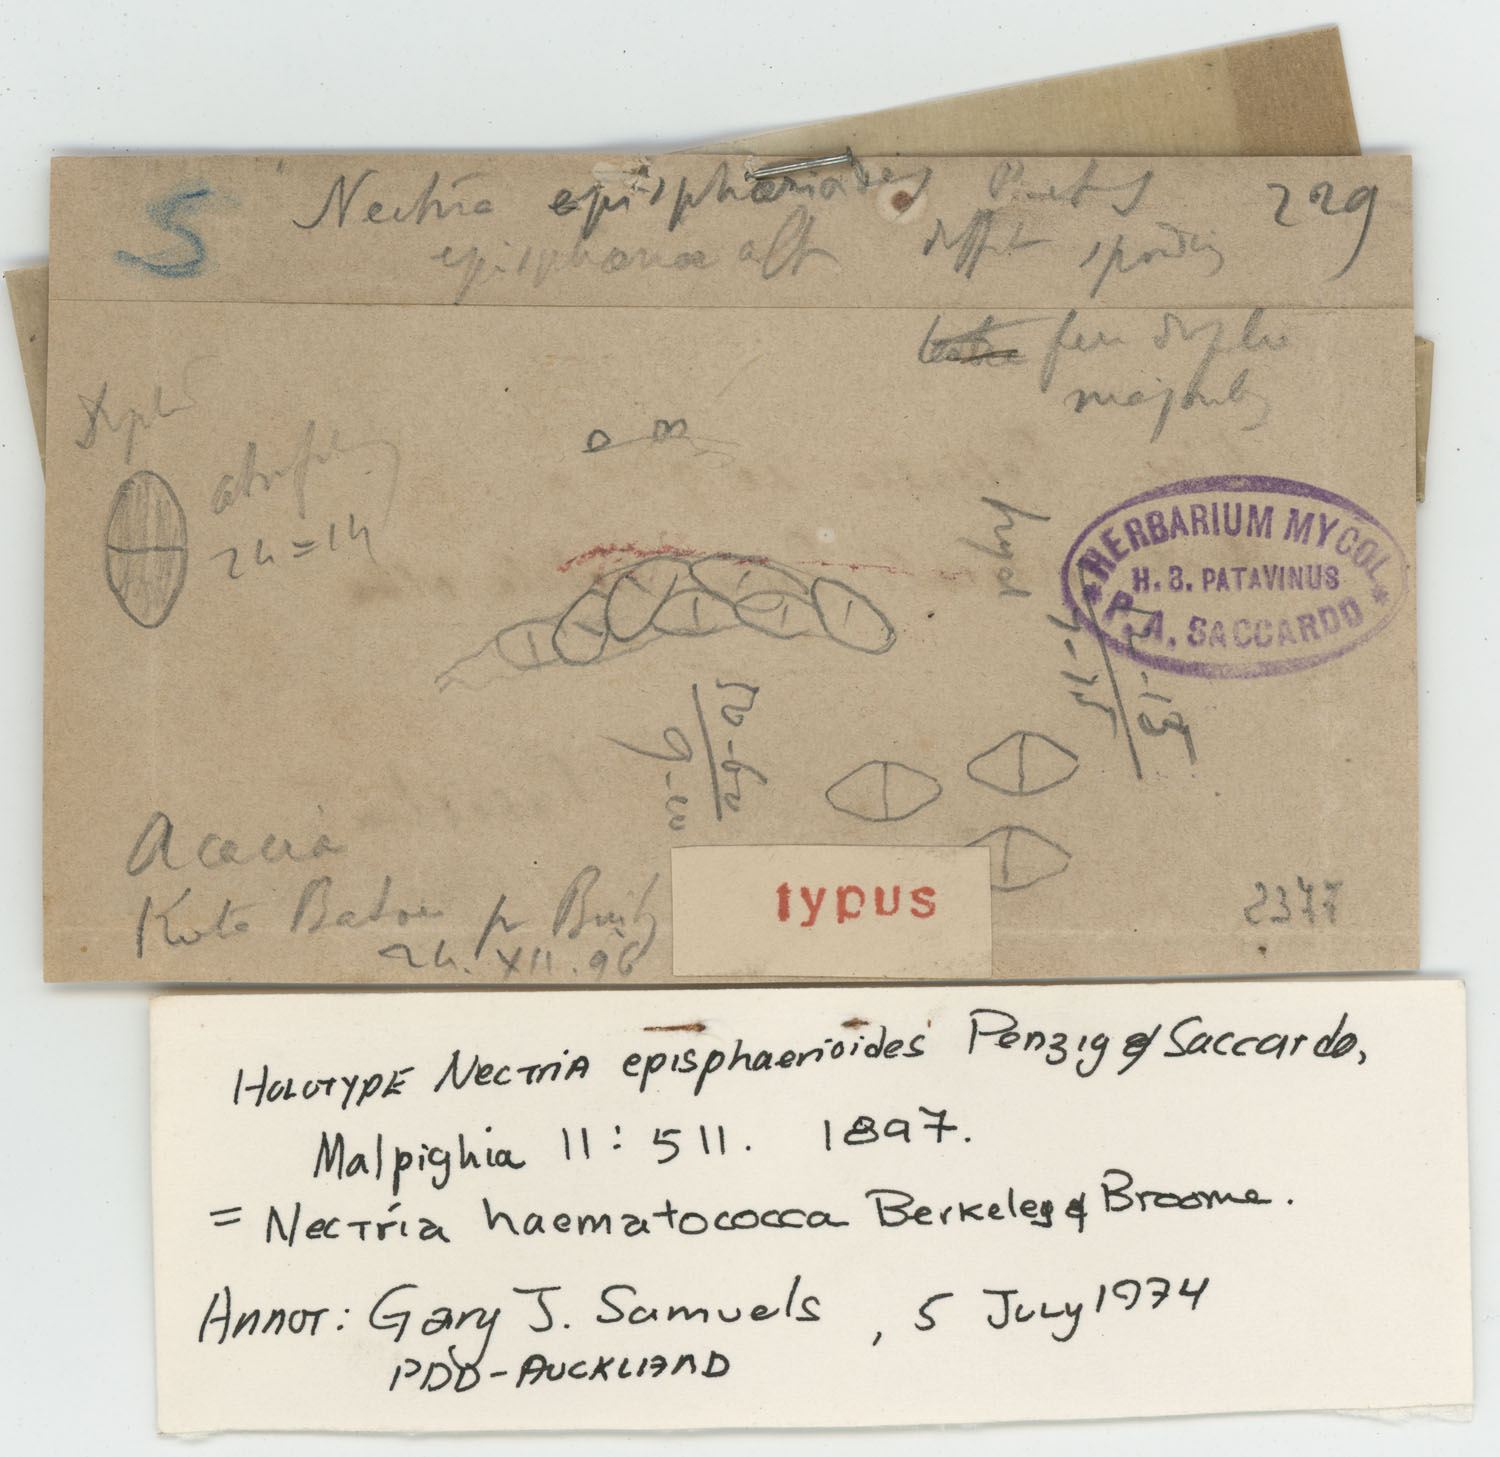 S Nectria episphaerioides 229
episphaeriae aff differt sporidiis
fere duplo
majoribus
24 = 14
HERBARIUM MYCOL.
H. B. PATAVINUS
P. A. SACCARDO
Acacia
Koto Batoe p
24. XII. 96
typus
2377
HOLOTYPE Nectria episphaerioides Penzig & Saccardo,
Malpighia 11: 511. 1897.
= Nectria haematococca Berkeley & Broome.
Annot: Gary J. Samuels, 5 July 1974
PDD-AUCKLAND